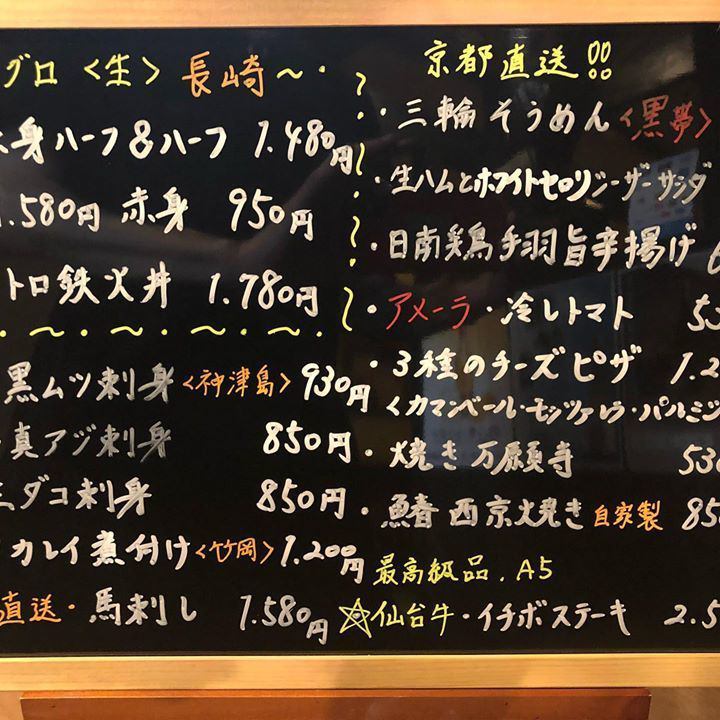 グロ〈生〉長崎〜・
身ハーフ&ハーフ 1.480円
.580円 赤身 950円
トロ鉄火丼 1.780円
・〜・〜・〜・〜・
黒ムツ刺身〈神津島〉930円
真アジ刺身 850円
ダコ刺身 850円
カレイ煮付け〈竹岡〉1.200円
直送・馬刺し 1.580円
京都直送!!
・三輪そうめん〈黒夢〉
・生ハムとホワイトセロリシーザーサラダ
・日南鶏手羽旨辛揚げ
・アメーラ・冷しトマト 5
・3種のチーズピザ 1.2
〈カマンベール・モッツァレラ・パルミジ
・焼き万願寺 530
・鰆西京焼き 自家製 85
最高級品.A5
☆仙台牛・イチボステーキ 2.5